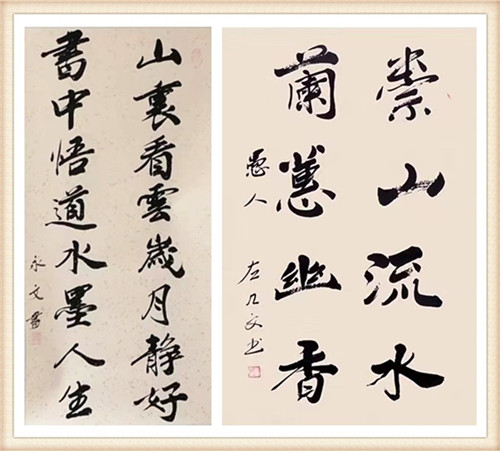 山裏看雲歲月靜好
書中悟道水墨人生
永文書
崇山流水
蘭蕙幽香
愚人
左文书